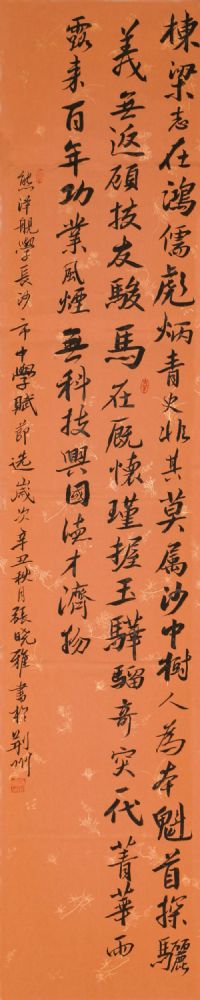 棟梁志在鴻儒彪炳青史非其莫属沙中樹人為本魁首探驪
義無返顧技友駿馬在厩懷瑾握玉驊騮奇突一代菁華雨
露来百年功業風煙無科技興國德才濟物
熊洋觀學長沙市中學賦節選歲次辛丑秋月張曉雅書於荆州